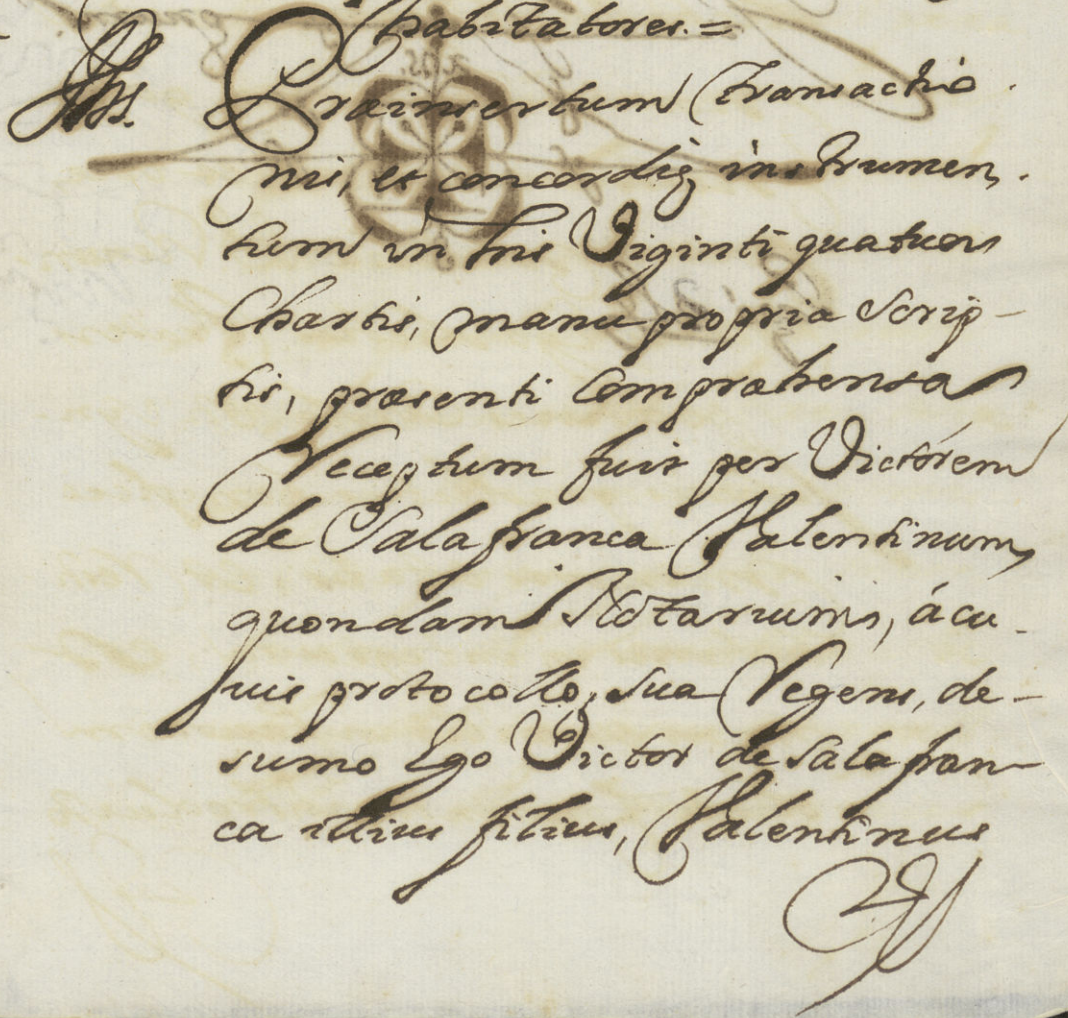 habitatores.=
Præinsertum transactio
nis, et concordię instrumen,
tum in his Viginti quatuor
Chartis, manu propria scrip-
tis, præsenti Compræhensa
Receptum fuit per Victórem
de Salafranca Valentinum,
quondam Notarium, á cu-
juis protocollo, sua Regens, de-
sumo Ego Victor de Salafran-
ca illius filius, Valentinus